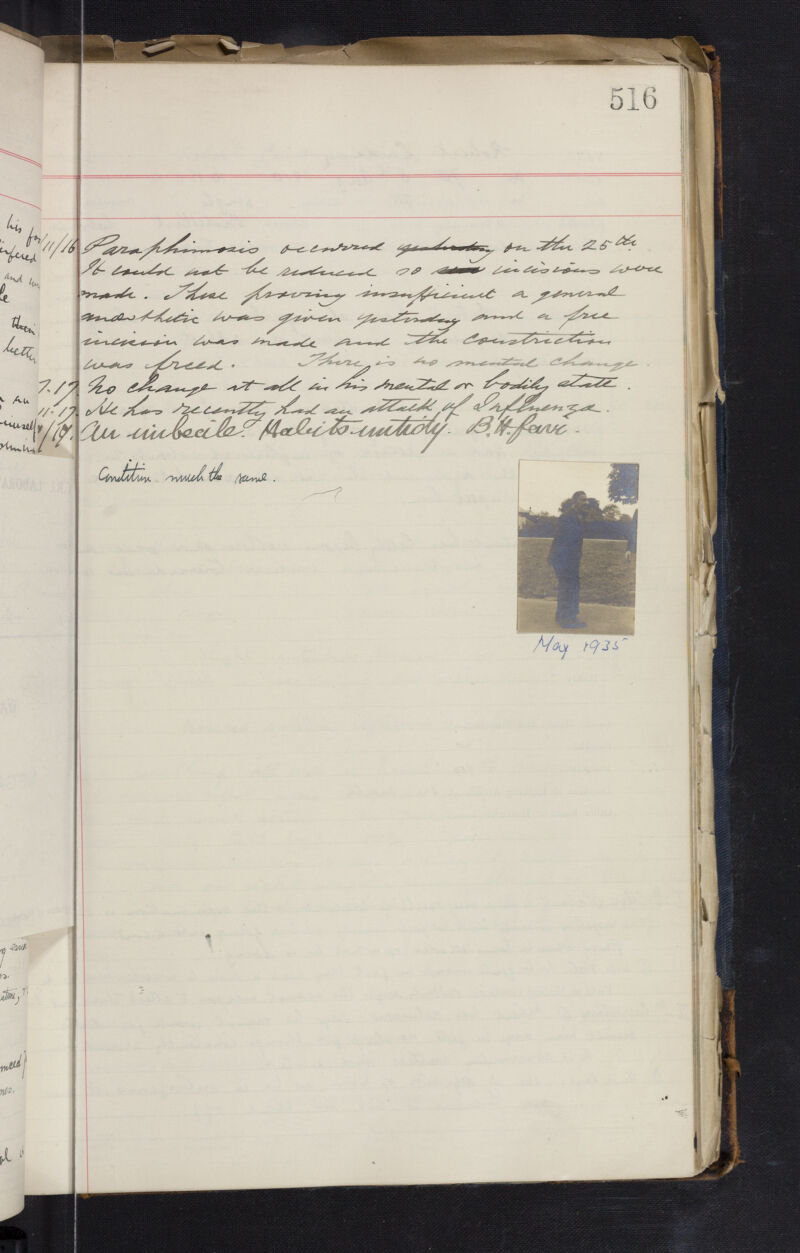 516
/11/16 Paraphimosis occurred yesterday on the 25th.
It could not be reduced so incisions were
made. These proving insufficient a general
anaesthetic was given yesterday and a free
incision was made and the constriction
was freed. There is no mental change.
7-17. No change at all in his mental or bodily state.
11-17. He has recently had an attack of Influenza.
/19. An imbecile. Habits untidy.
Condition much the same.
May 1935